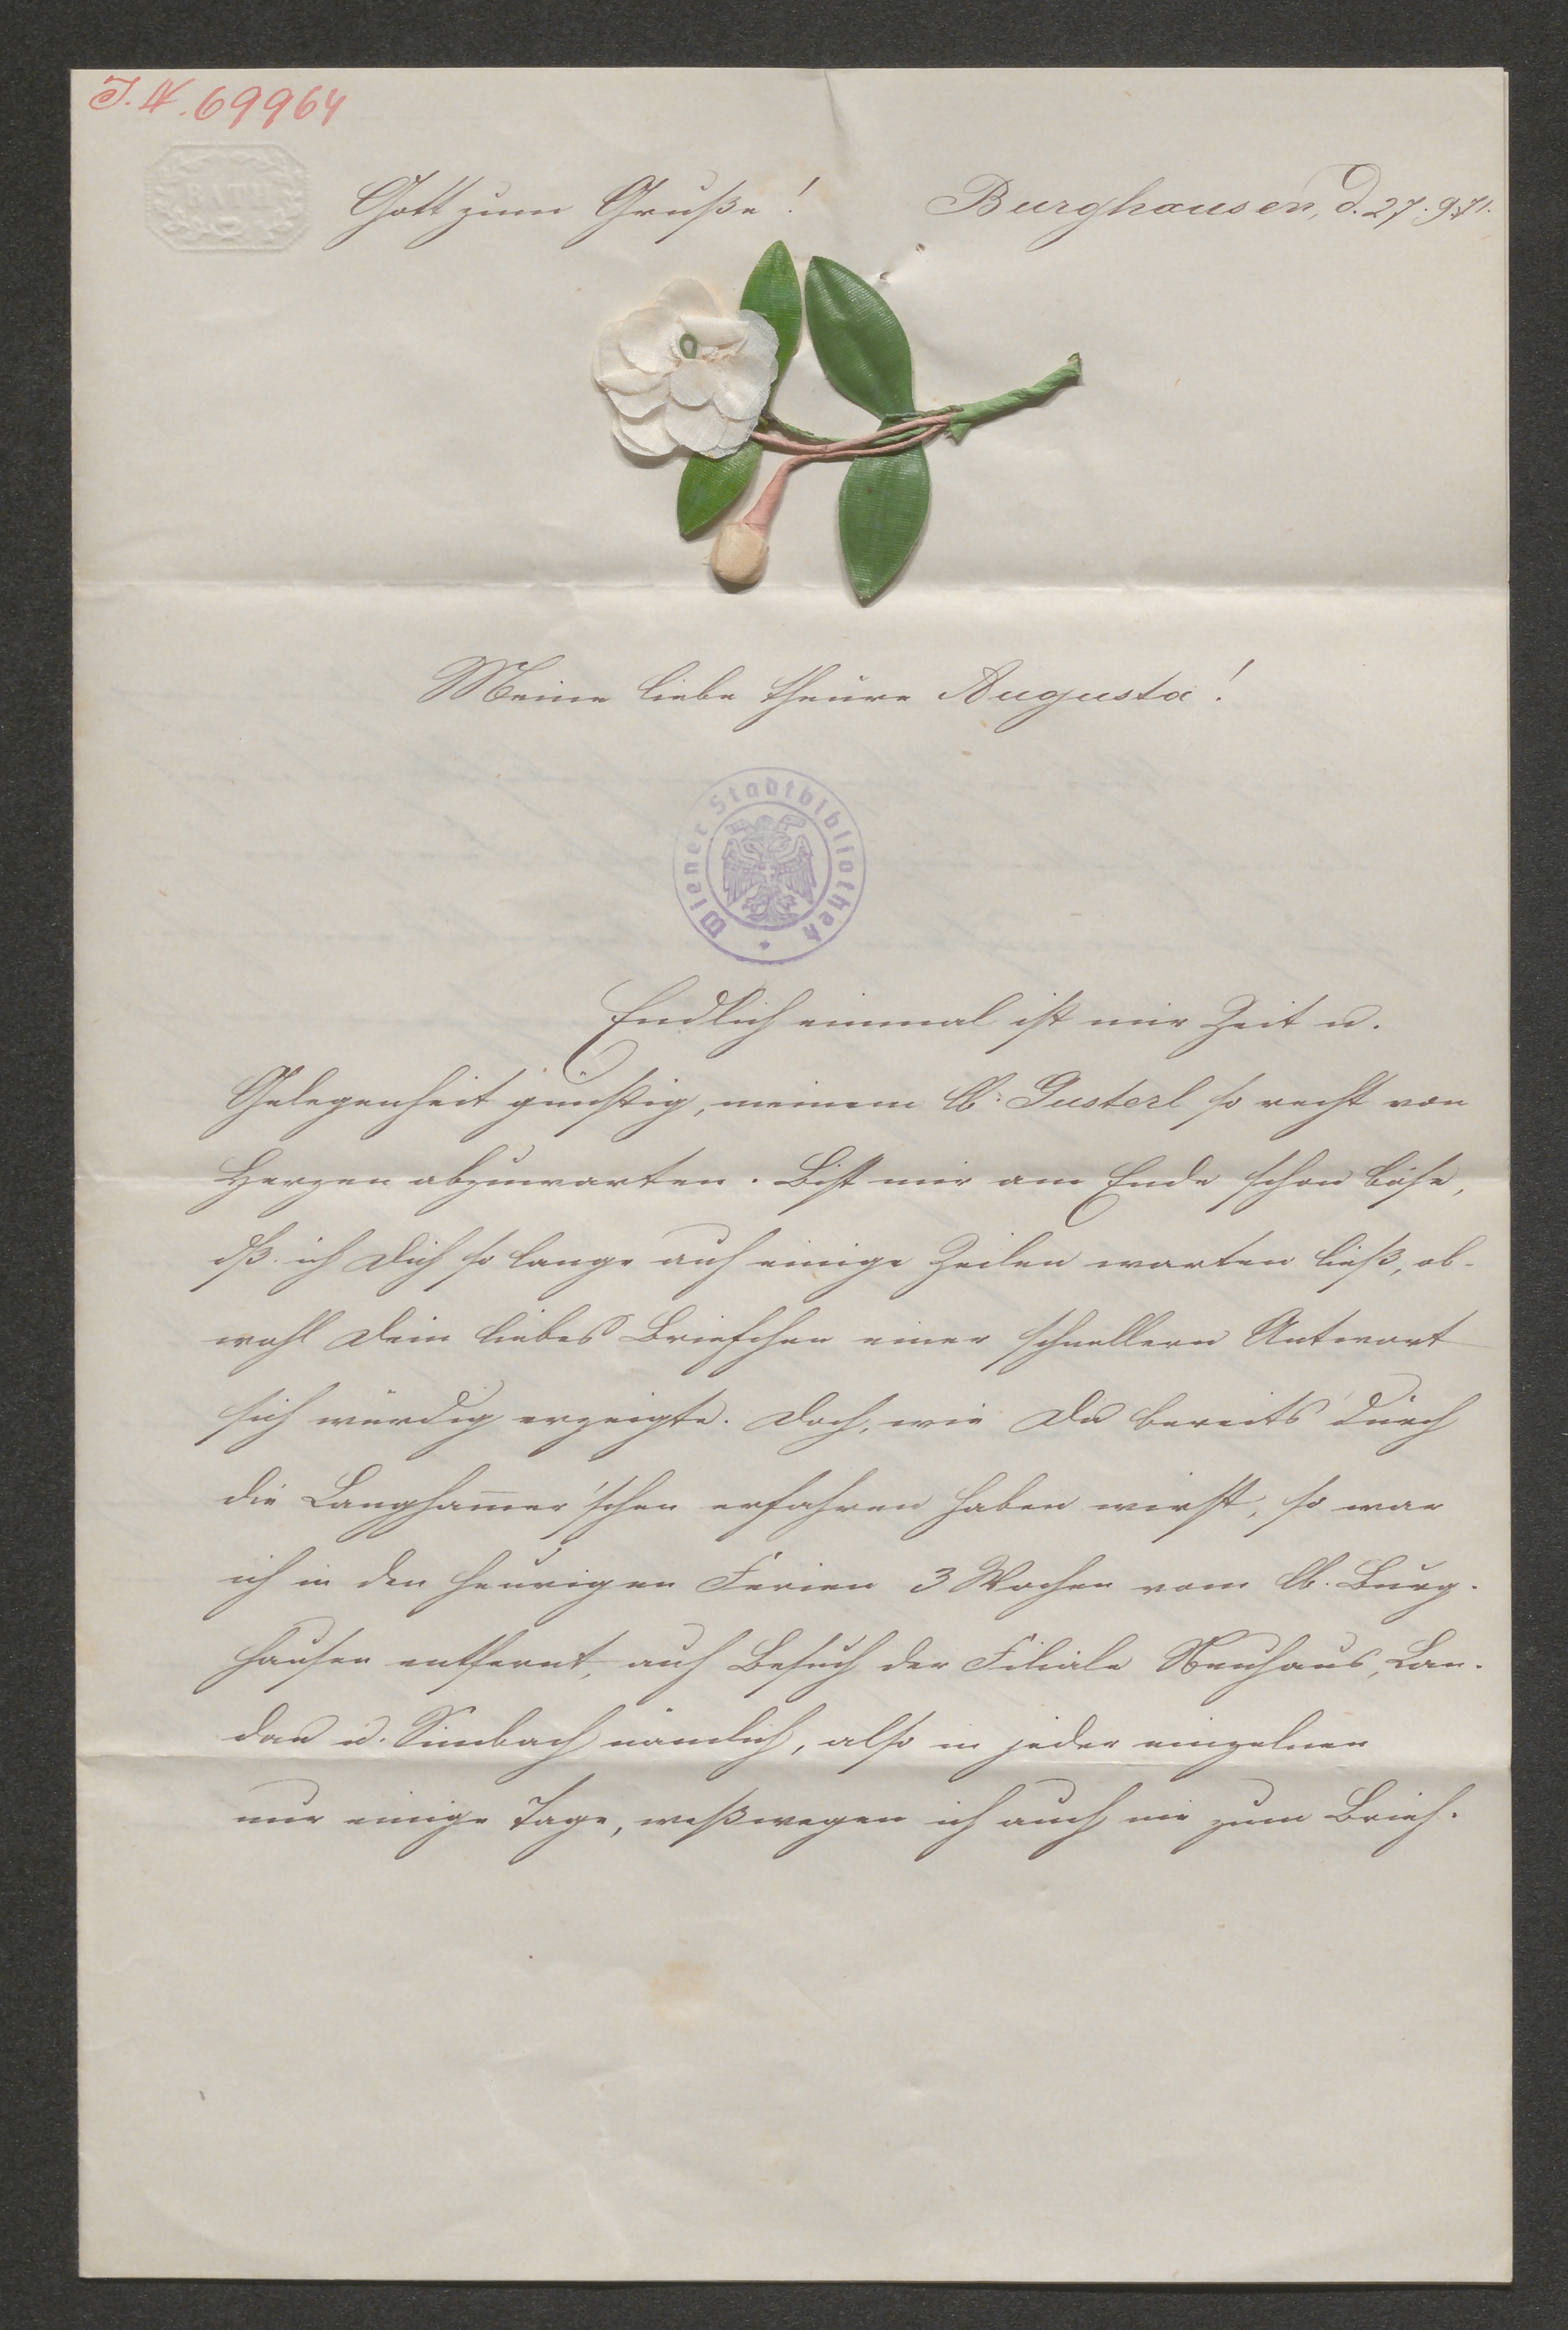 J. N. 69964
BATH
Gott zum Gruße! Burghausen, d. 27. 9. 71.
Meine liebe theure Augusta!
Wiener Stadtbibliothek
Endlich einmal ist mir Zeit u.
Gelegenheit günstig, meinem lb. Gusterl so recht von
Herzen abzuwarten. Bist mir am Ende schon böse,
dß ich Dich so lange auf einige Zeilen warten ließ, ob-
wohl Dein liebes Briefchen einer schnellern Antwort
sich würdig erzeigte. Doch, wie Du bereits durch
die Langham̅er'schen erfahren haben wirst, so war
ich in den heurigen Ferien 3 Wochen vom lb. Burg-
hausen entfernt, auf Besuch der Filiale Neuhaus, Lan-
dau u. Simbach nämlich, also in jeder einzelnen
nur einige Tage, weßwegen ich auch nie zum Brief-